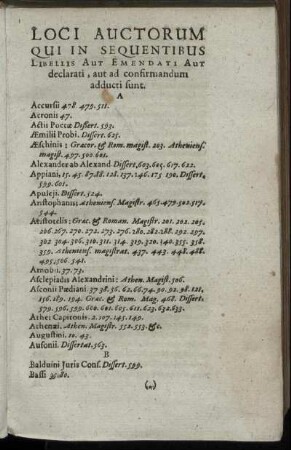 LOCI AUCTORUM
QUI IN SEQUENTIBUS
LIBELLIS AUT EMENDATI AUT
declarati, aut ad confirmandum
adducti sunt.
A
Accursii 478. 479. 511.
Acronii 47.
Actii Poetæ Dissert. 593.
Æmilii Probi. Dissert. 625.
Æschinis: Græcor. & Rom. magist. 203. Atheniens.
magist. 497. 500. 601.
Alexander ab Alexand Dissert. 603. 605. 617. 622.
Appiani, 15. 45. 87. 88. 128. 137. 146. 175 190. Dissert.
599. 601.
Apuleji. Dissert. 524.
Aristophanis: Atheniens. Magistr. 465. 479. 502. 517.
544.
Aristotelis: Græc. & Roman. Magistr. 201. 202. 205.
206. 267. 270. 272. 273. 276. 280. 282. 288. 292. 297.
302 304. 306. 310. 311. 314. 319. 320. 340. 355. 358.
359. Atheniens. magistrat. 437. 443. 448. 488.
495. 506. 541.
Arnobii. 37. 73.
Asclepiadis Alexandrini: Athen. Magist. 506.
Asconii Pædiani. 37 38. 56. 62. 66. 74. 90. 92. 98. 121.
156. 189. 194. Græc. & Rom. Mag. 468. Dissert.
579. 596. 599. 600. 601. 605. 611. 623. 632. 633.
Athei Capitonis. 2. 107. 145. 149.
Athenæi. Athen. Magistr. 552. 553. &c.
Augustini. 10. 43.
Ausonii. Dissertat. 563.
B
Balduini Juris Cons. Dissert. 599.
Bassi 35. 80.
(a)